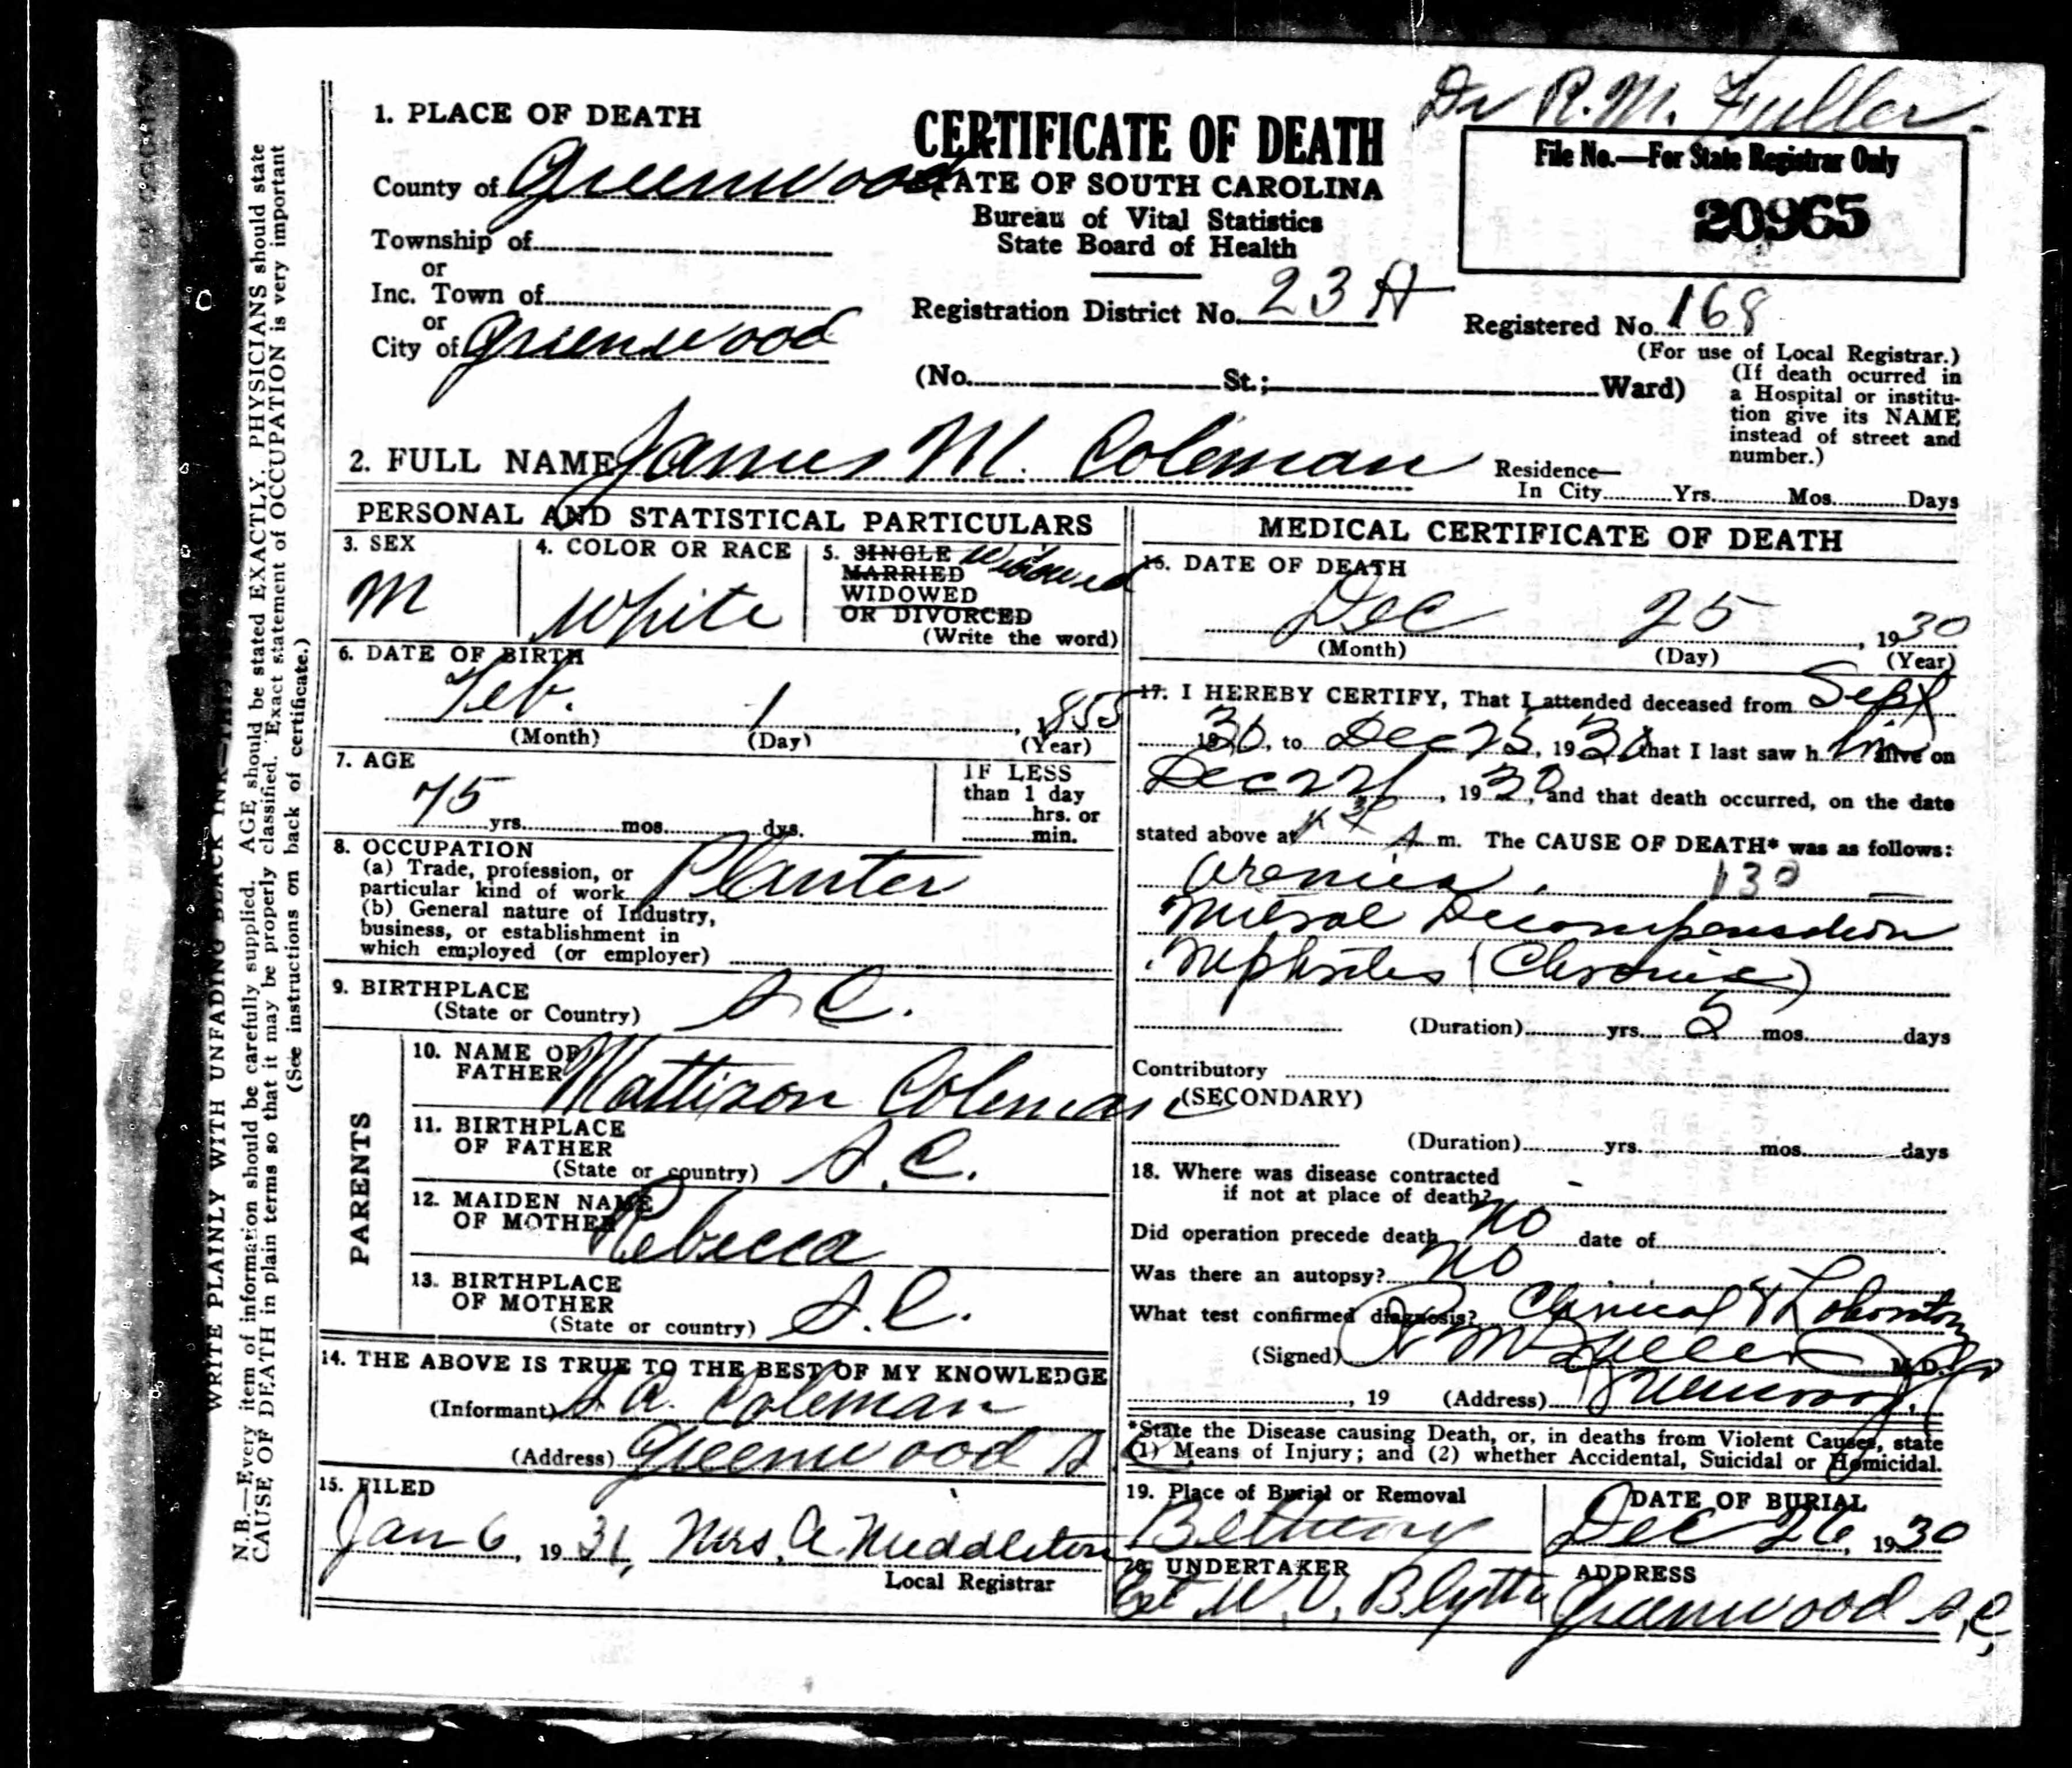 Dr R. M. Fuller.
1. PLACE OF DEATH
County of Greenwood
Township of
or
Inc. Town of
or
City of Greenwood
CERTIFICATE OF DEATH
STATE OF SOUTH CAROLINA
Bureau of Vital Statistics
State Board of Health
Registration District No. 23 A
File No.—For State Registrar Only
20965
Registered No. 168
(For use of Local Registrar.)
(No. St.; Ward)
(If death ocurred in
a Hospital or institu-
tion give its NAME
instead of street and
number.)
2. FULL NAME James M. Coleman
Residence—
In City Yrs. Mos. Days
PERSONAL AND STATISTICAL PARTICULARS
3. SEX
M
4. COLOR OR RACE
White
5. SINGLE Widowed
MARRIED
WIDOWED
OR DIVORCED
(Write the word)
6. DATE OF BIRTH
Feb. 1, 1855
(Month) (Day) (Year)
7. AGE
75 yrs. mos. dys.
IF LESS
than 1 day
hrs. or
min.
8. OCCUPATION
(a) Trade, profession, or
particular kind of work Planter
(b) General nature of Industry,
business, or establishment in
which employed (or employer)
9. BIRTHPLACE
(State or Country) S C.
PARENTS
10. NAME OF
FATHER Mattison Coleman
11. BIRTHPLACE
OF FATHER
(State or country) S.C.
12. MAIDEN NAME
OF MOTHER Rebecca
13. BIRTHPLACE
OF MOTHER
(State or country) S.C.
14. THE ABOVE IS TRUE TO THE BEST OF MY KNOWLEDGE
(Informant) S A. Coleman
(Address) Greenwood S C
15. FILED
Jan 6, 1931, Mrs. A. Middleton
Local Registrar
MEDICAL CERTIFICATE OF DEATH
16. DATE OF DEATH
Dec 25, 1930
(Month) (Day) (Year)
17. I HEREBY CERTIFY, That I attended deceased from Sept
1930, to Dec 25, 1930 that I last saw him alive on
Dec, 1930, and that death occurred, on the date
stated above at A m. The CAUSE OF DEATH* was as follows:
Uremia. 130
Mitral Decompensation
Nephritis (Chronic)
(Duration) yrs. mos. days
Contributory
(SECONDARY)
(Duration) yrs. mos. days
18. Where was disease contracted
if not at place of death? -
Did operation precede death No date of
Was there an autopsy? No
What test confirmed diagnosis? Clinical & Laboratory
(Signed) R M Fuller M.D.
, 19 (Address) Greenwood, S C
*State the Disease causing Death, or, in deaths from Violent Causes, state
(1) Means of Injury; and (2) whether Accidental, Suicidal or Homicidal.
19. Place of Burial or Removal
Bethany
DATE OF BURIAL
Dec 26, 1930
20. UNDERTAKER
W. V. Blyth
ADDRESS
Greenwood S.C.
WRITE PLAINLY WITH UNFADING BLACK INK
N.B.—Every item of information should be carefully supplied. AGE should be stated EXACTLY. PHYSICIANS should state
CAUSE OF DEATH in plain terms so that it may be properly classified. Exact statement of OCCUPATION is very important
(See instructions on back of certificate.)